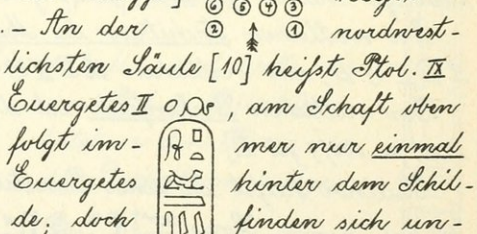 ⑥ ⑤ ④ ③
.- An der ② ① nordwest-
lichsten Säule [10] heißt Ptol. IX
Euergetes II, am Schaft oben
folgt im- mer nur einmal
Euergetes hinter dem Schil-
de; doch finden sich un-